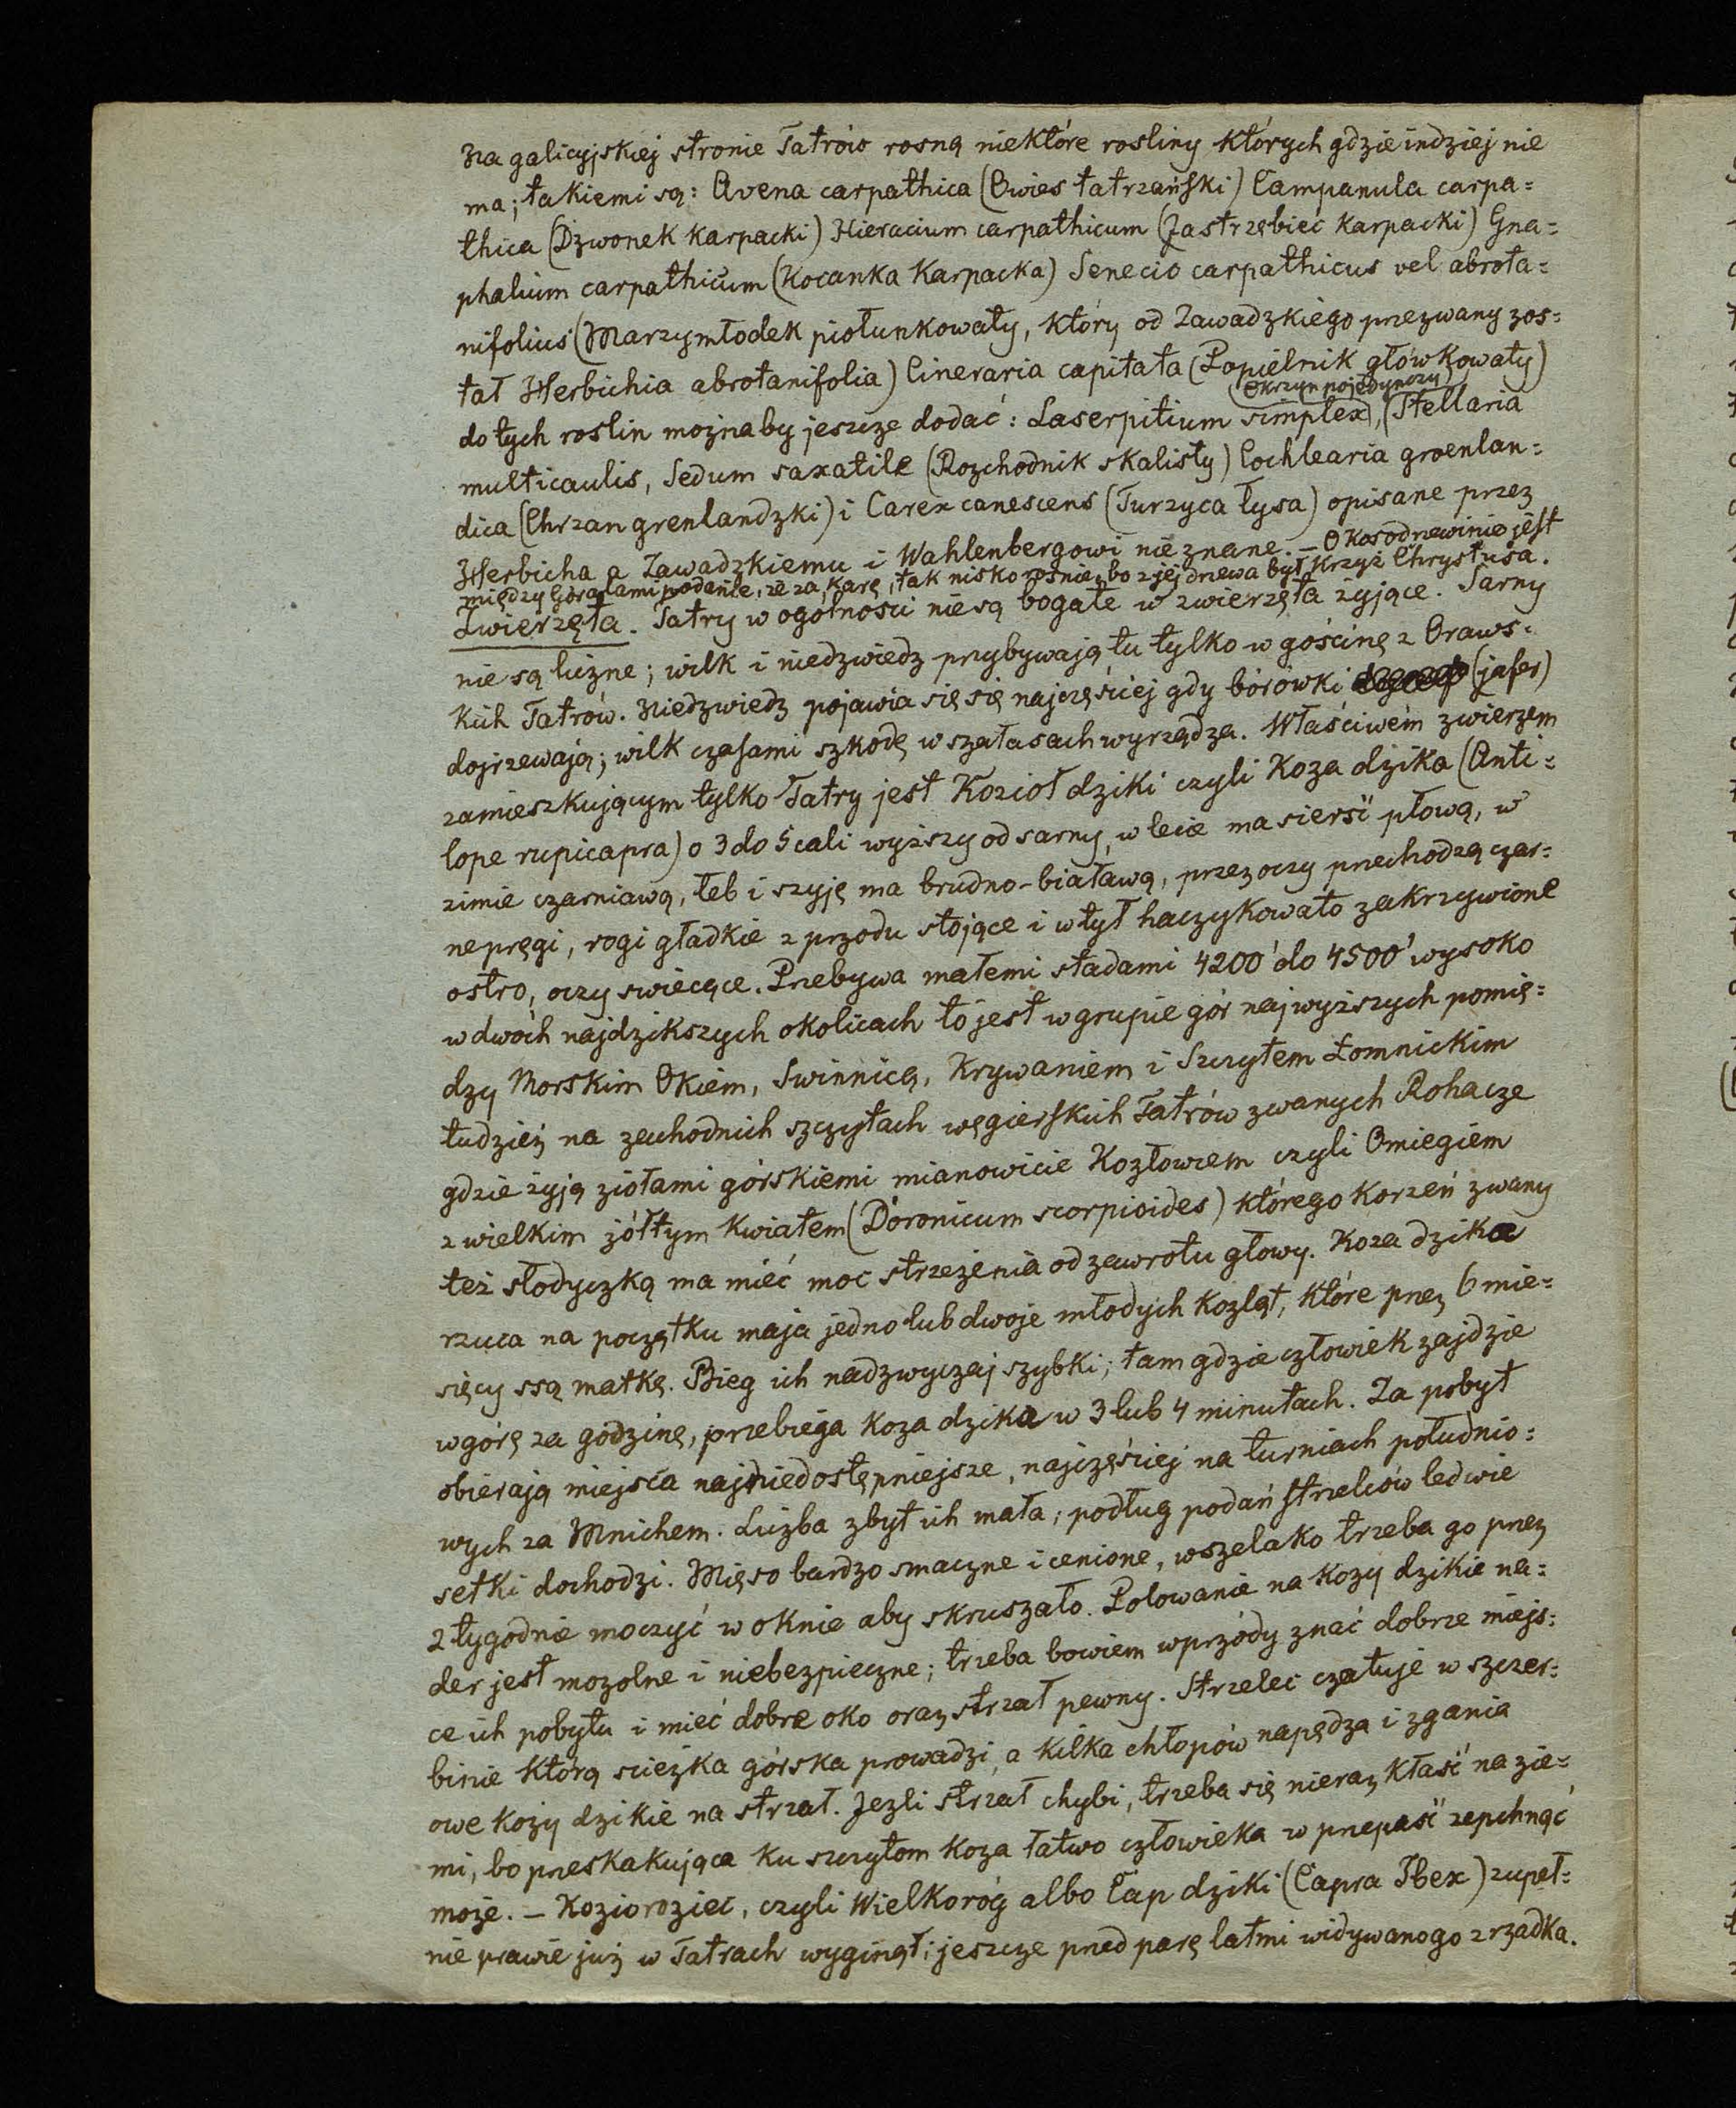 Na galicyjskiej stronie Tatrów rosną niektóre rosliny których gdzieindziej nie
ma; takiemi są: Avena carpathica (Owies tatrzański) Campanula carpa=
thica (Dzwonek Karpacki) Hieracium carpathicum (Jastrzębiec Karpacki) Gna=
phalium carpathicum (Kocanka Karpacka) Senecio carpathicus vel abrota=
nifolius (Marzymłodek piołunkowaty, który od Zawadzkiego przezwany zos=
tał Herbichia abrotanifolia) Cineraria capitata (Popielnik główkowaty)
(Okrzyn pojedynczy)
do tych roslin możnaby jeszcze dodać: Laserpitium simplex, (Stellaria
multicaulis, Sedum saxatile (Rozchodnik skalisty) Cochlearia groenlan=
dica (Chrzan grenlandzki) i Carex canescens (Turzyca łysa) opisane przez
Herbicha a Zawadzkiemu i Wahlenbergowi nie znane. – O Kosodrzewinie jest
między Góralami podanie, że za Karę, tak nisko rośnie, bo z jej drzewa był Krzyż Chrystusa.
Zwierzęta. Tatry w ogólnosci nie są bogate w zwierzęta żyjące. Sarny
nie są liczne; wilk i niedzwiedz przybywają tu tylko w gościnę z Oraws=
kich Tatrów. Niedzwiedz pojawia się się najczęściej gdy borówki (jafer)
dojrzewają; wilk czasami szkodę w szałasach wyrządza. Właściwém zwierzem
zamieszkującym tylko Tatry jest Kozioł dziki czyli Koza dzika (Anti=
lope rupicapra) o 3 do 5 cali wyższy od sarny, w lecie ma sierść płową, w
zimie czarniawą, łeb i szyję ma brudno-białawą, przez oczy przechodzą czar=
ne pręgi, rogi gładkie z przodu stojące i w tył haczykowato zakrzywione
ostro, oczy swiecące. Przebywa małemi stadami 4200' do 4500' wysoko
w dwóch najdzikszych okolicach to jest w grupie gór najwyższych pomię=
dzy Morskim Okiem, Swinnicą, Krywaniem i Szczytem Łomnickim
tudzież na zachodnich szczytach węgierskich Tatrów zwanych Rohacze
gdzie żyją ziołami górskiemi mianowicie Kozłowcem czyli Omiegiem
z wielkim żółtym Kwiatem (Doronicum scorpioides) którego Korzeń zwany
też słodyczką ma mieć moc strzeżenia od zawrotu głowy. Koza dzika
rzuca na początku maja jedno lub dwoje młodych Kozląt, które przez 6 mie=
sięcy ssą matkę. Bieg ich nadzwyczaj szybki; tam gdzie człowiek zajdzie
w górę za godzinę, przebiega Koza dzika w 3 lub 4 minutach. Za pobyt
obierają miejsca najniedostępniejsze, najczęściej na turniach południo=
wych za Mnichem. Liczba zbyt ich mała; podług podań strzelców ledwie
setki dochodzi. Mięso bardzo smaczne i cenione, wszelako trzeba go przez
2 tygodnie moczyć w oknie aby skruszało. Polowanie na Kozy dzikie na=
der jest mozolne i niebezpieczne; trzeba bowiem wprzódy znać dobrze miejs=
ce ich pobytu i mieć dobre oko oraz strzał pewny. Strzelec czatuje w szczer=
binie którą sciezka górska prowadzi, a kilka chłopów napędza i zgania
owe kozy dzikie na strzał. Jezli strzał chybi, trzeba się nieraz kłaść na zie=
mi, bo przeskakująca ku szczytom Koza łatwo człowieka w przepaść zepchnąć
może. – Koziorożec, czyli Wielkoróg albo Cap dziki (Capra Ibex) zupeł=
nie prawie już w Tatrach wyginął; jeszcze przed parę latmi widywano go zrzadka.